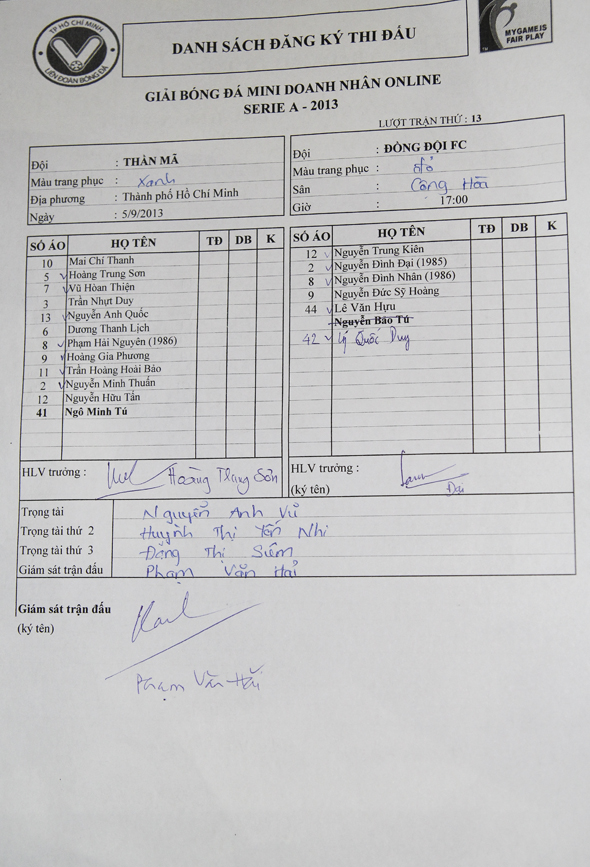 TP HỒ CHÍ MINH
LIÊN ĐOÀN BÓNG ĐÁ
DANH SÁCH ĐĂNG KÝ THI ĐẤU
MYGAME IS
FAIR PLAY
GIẢI BÓNG ĐÁ MINI DOANH NHÂN ONLINE
SERIE A - 2013
LƯỢT TRẬN THỨ : 13
Đội : THẦN MÃ
Màu trang phục : Xanh
Địa phương : Thành phố Hồ Chí Minh
Ngày : 5/9/2013
Đội : ĐỒNG ĐỘI FC
Màu trang phục : đỏ
Sân : Cộng Hòa
Giờ : 17:00
SỐ ÁO HỌ TÊN TĐ DB K
10 Mai Chí Thanh
5 Hoàng Trung Sơn
7 Vũ Hòan Thiện
3 Trần Nhựt Duy
13 Nguyễn Anh Quốc
6 Dương Thanh Lịch
8 Phạm Hải Nguyên (1986)
9 Hoàng Gia Phương
11 Trần Hoàng Hoài Bảo
2 Nguyễn Minh Thuấn
12 Nguyễn Hữu Tấn
41 Ngô Minh Tú
SỐ ÁO HỌ TÊN TĐ DB K
12 Nguyễn Trung Kiên
2 Nguyễn Đình Đại (1985)
8 Nguyễn Đình Nhân (1986)
9 Nguyễn Đức Sỹ Hoàng
44 Lê Văn Hựu
Nguyễn Bão Tú
42 Lý Quốc Duy
HLV trưởng : Hoàng Trung Sơn
HLV trưởng :
(ký tên) Đại
Trọng tài Nguyễn Anh Vũ
Trọng tài thứ 2 Huỳnh Thị Yến Nhi
Trọng tài thứ 3 Đặng Thị Siêm
Giám sát trận đấu Phạm Văn Hải
Giám sát trận đấu
(ký tên)
Phạm Văn Hải